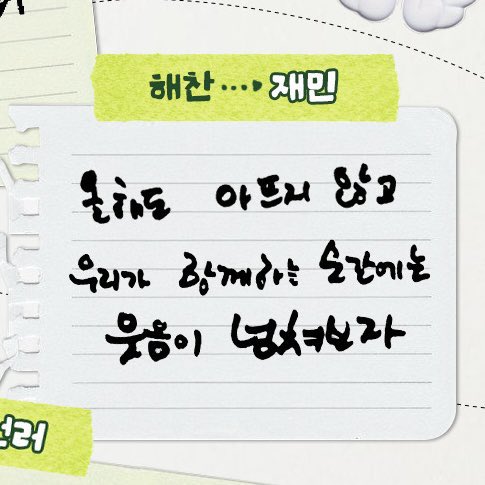 해찬 ····▸ 재민
올해도 아프지 않고
우리가 함께하는 순간에는
웃음이 넘쳐보자
러